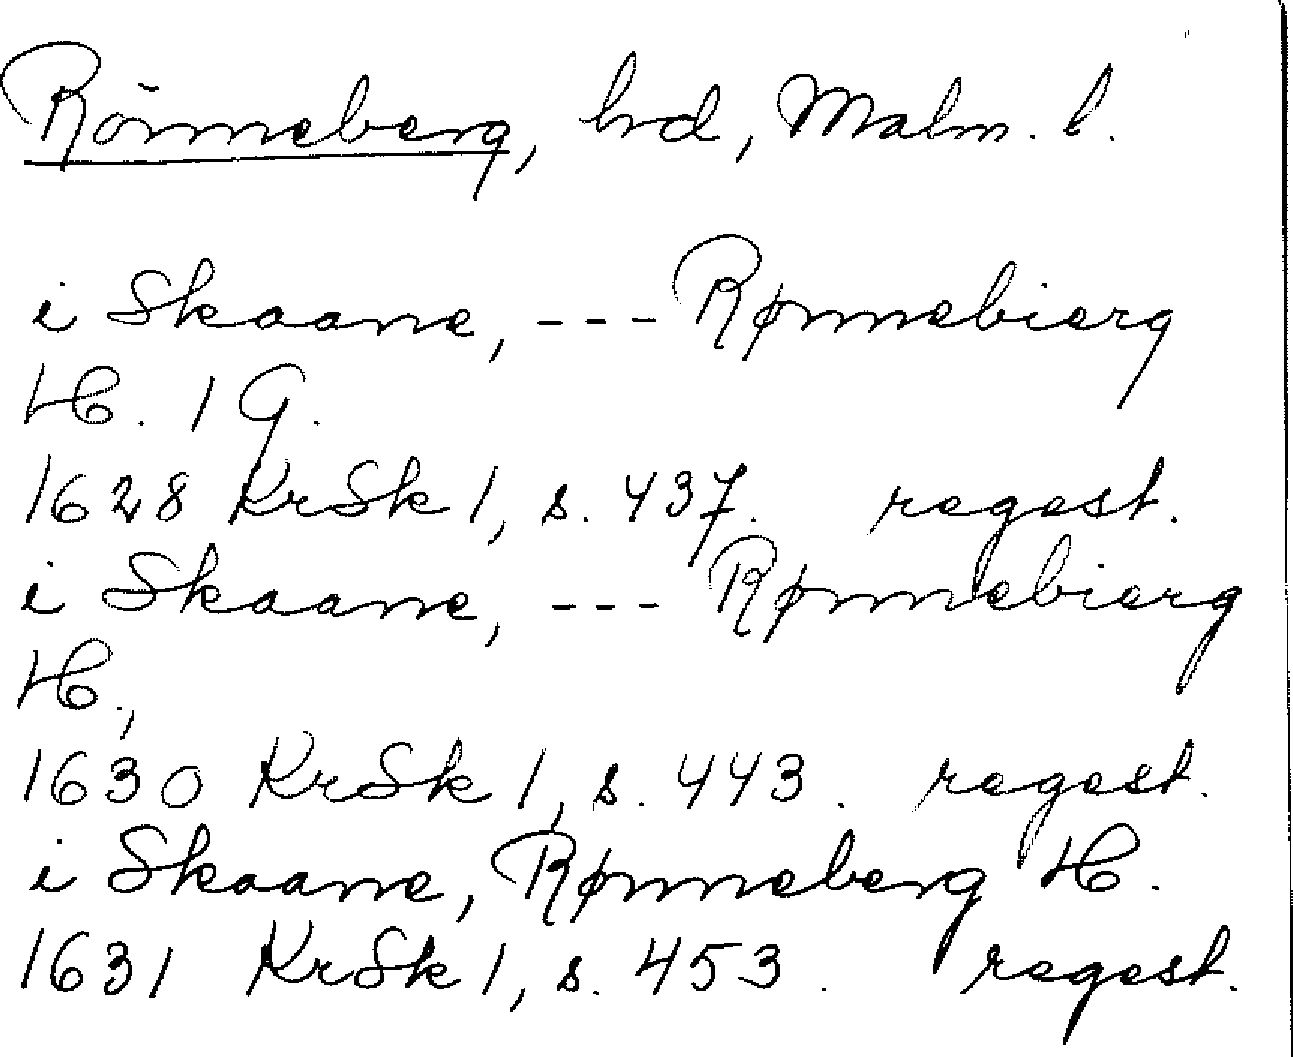 Rönneberg, hrd, Malm. l.
i Skaane, --- Rønnebierg
H. 1 G.
1628 KrSk 1, s. 437. regest.
i Skaane, --- Rønnebierg
H.,
1630 KrSk 1, s. 443. regest.
i Skaane, Rønneberg H.
1631 KrSk 1, s. 453. regest.